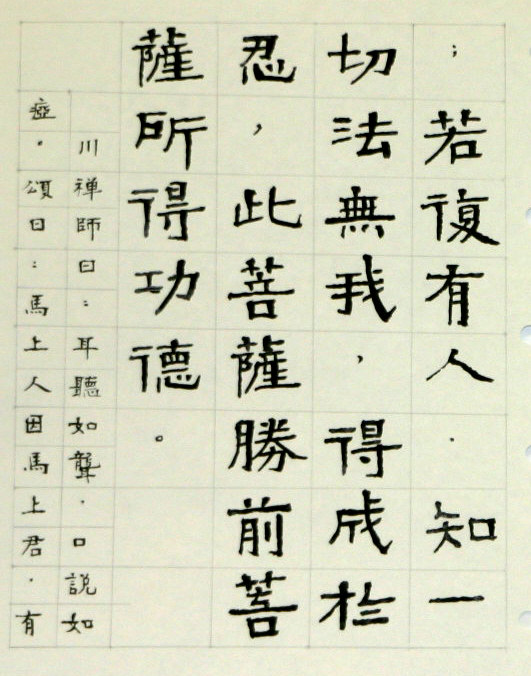 ；若復有人．知一
切法無我，得成於
忍，此菩薩勝前菩
薩所得功德。
川禅師曰：耳聽如聾．口說如
瘂．頌曰：馬上人因馬上君．有